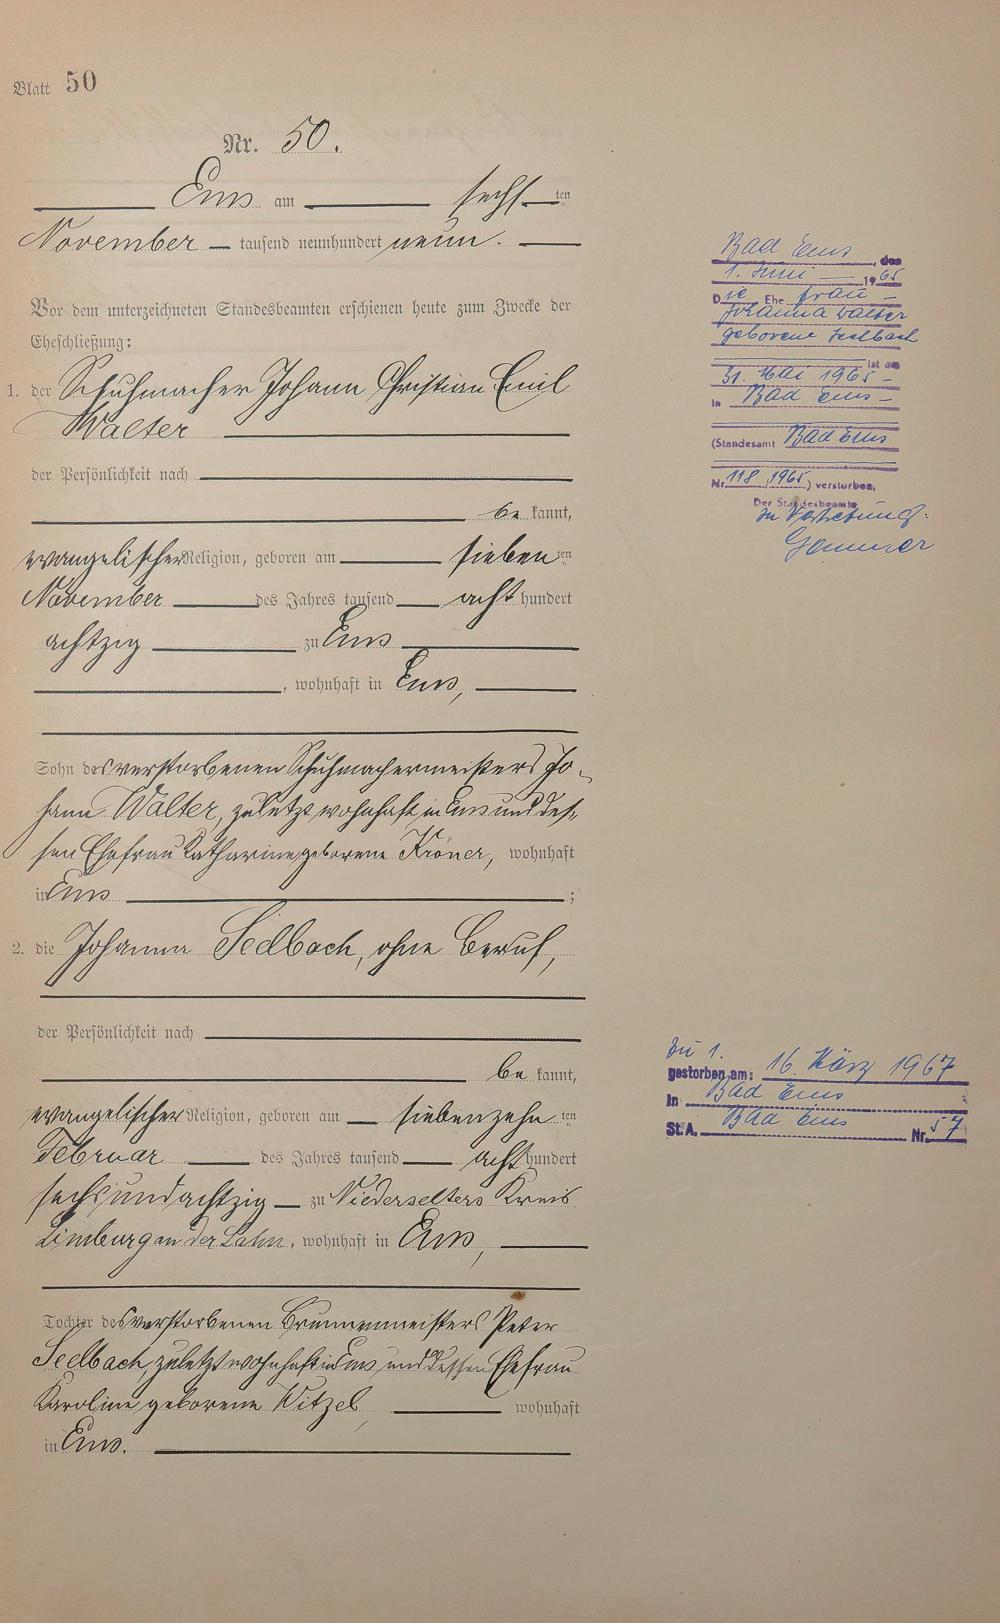 Blatt 50
Nr. 50.
Ems am sechsten
November tausend neunhundert neun.
Vor dem unterzeichneten Standesbeamten erschienen heute zum Zwecke der
Eheschließung:
1. der Schuhmacher Johann Christian Emil
Walter
der Persönlichkeit nach
be kannt,
evangelischer Religion, geboren am siebenten
November des Jahres tausend acht hundert
achtzig zu Ems
, wohnhaft in Ems,
Sohn des verstorbenen Schuhmachermeisters Jo-
hann Walter, zuletzt wohnhaft in Ems und des-
sen Ehefrau Katharine geborene Kröner, wohnhaft
in Ems ;
2. die Johanna Seelbach, ohne Beruf,
der Persönlichkeit nach
be kannt,
evangelischer Religion, geboren am siebenzehnten
Februar des Jahres tausend acht hundert
sechsundachtzig zu Niederselters Kreis
Limburg an der Lahn, wohnhaft in Ems,
Tochter des verstorbenen Brunnenmeisters Peter
Seelbach, zuletzt wohnhaft in Ems und dessen Ehefrau
Karoline geborene Witzel wohnhaft
in Ems.
Bad Ems, den
1. Juni 1965
Die Ehefrau
Johanna Walter
geborene Seelbach
ist am
31. Mai 1965
in Bad Ems
(Standesamt Bad Ems
Nr. 118/1965) verstorben.
Der Standesbeamte
In Vertretung:
zu 1.
gestorben am: 16. März 1967
in Bad Ems
St.A. Bad Ems Nr. 57